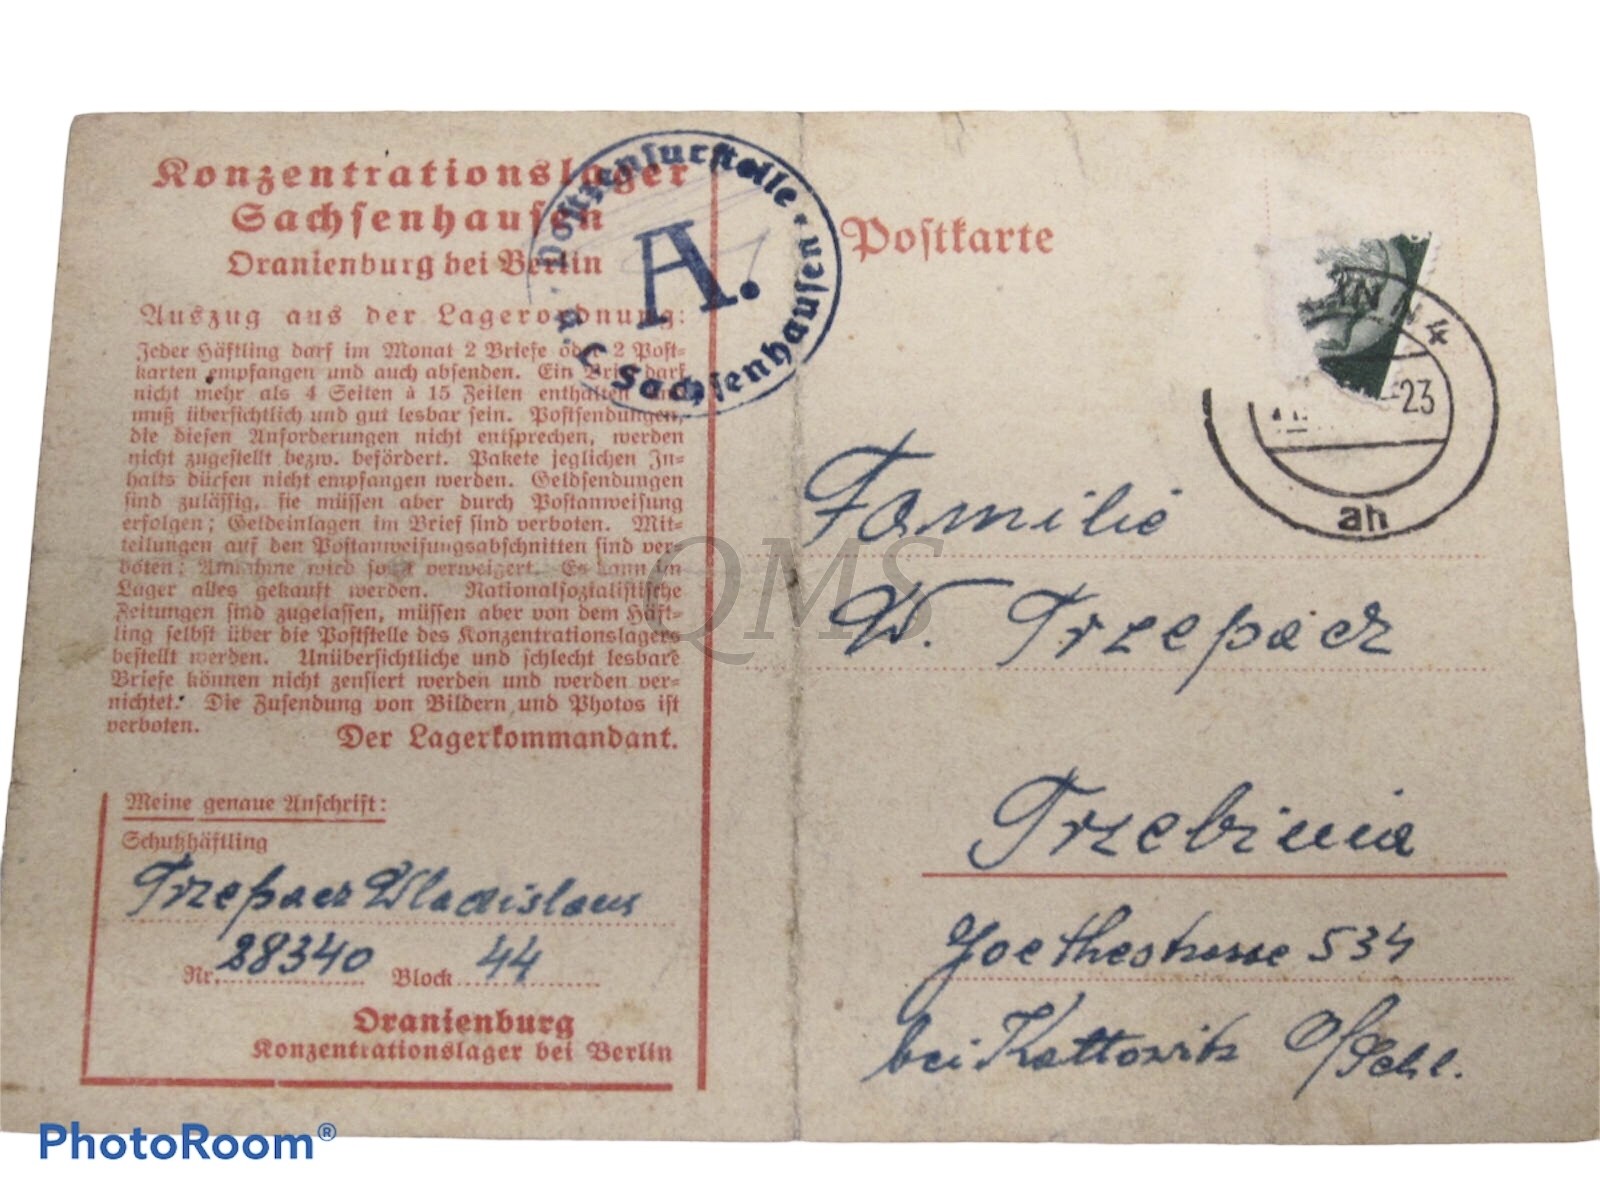 Konzentrationslager
Sachsenhausen
Oranienburg bei Berlin
Auszug aus der Lagerordnung:
Jeder Häftling darf im Monat 2 Briefe oder 2 Post-
karten empfangen und auch absenden. Ein Brief darf
nicht mehr als 4 Seiten à 15 Zeilen enthalten und
muß übersichtlich und gut lesbar sein. Postsendungen,
die diesen Anforderungen nicht entsprechen, werden
nicht zugestellt bezw. befördert. Pakete jeglichen In-
halts dürfen nicht empfangen werden. Geldsendungen
sind zulässig, sie müssen aber durch Postanweisung
erfolgen; Geldeinlagen im Brief sind verboten. Mit-
teilungen auf den Postanweisungsabschnitten sind ver-
boten: Annahme wird sonst verweigert. Es kann im
Lager alles gekauft werden. Nationalsozialistische
Zeitungen sind zugelassen, müssen aber von dem Häft-
ling selbst über die Poststelle des Konzentrationslagers
bestellt werden. Unübersichtliche und schlecht lesbare
Briefe können nicht zensiert werden und werden ver-
nichtet. Die Zusendung von Bildern und Photos ist
verboten.
Der Lagerkommandant.
Meine genaue Anschrift:
Schutzhäftling
Trzepacz Wladislaus
Nr. 28340 Block 44
Oranienburg
Konzentrationslager bei Berlin
Postzensurstelle
A.
Sachsenhausen
Postkarte
4
23
ah
Familie
W. Trzepacz
Trzebinia
Goethestrasse 534
bei Kattowitz O/Schl.
QMS
PhotoRoom®